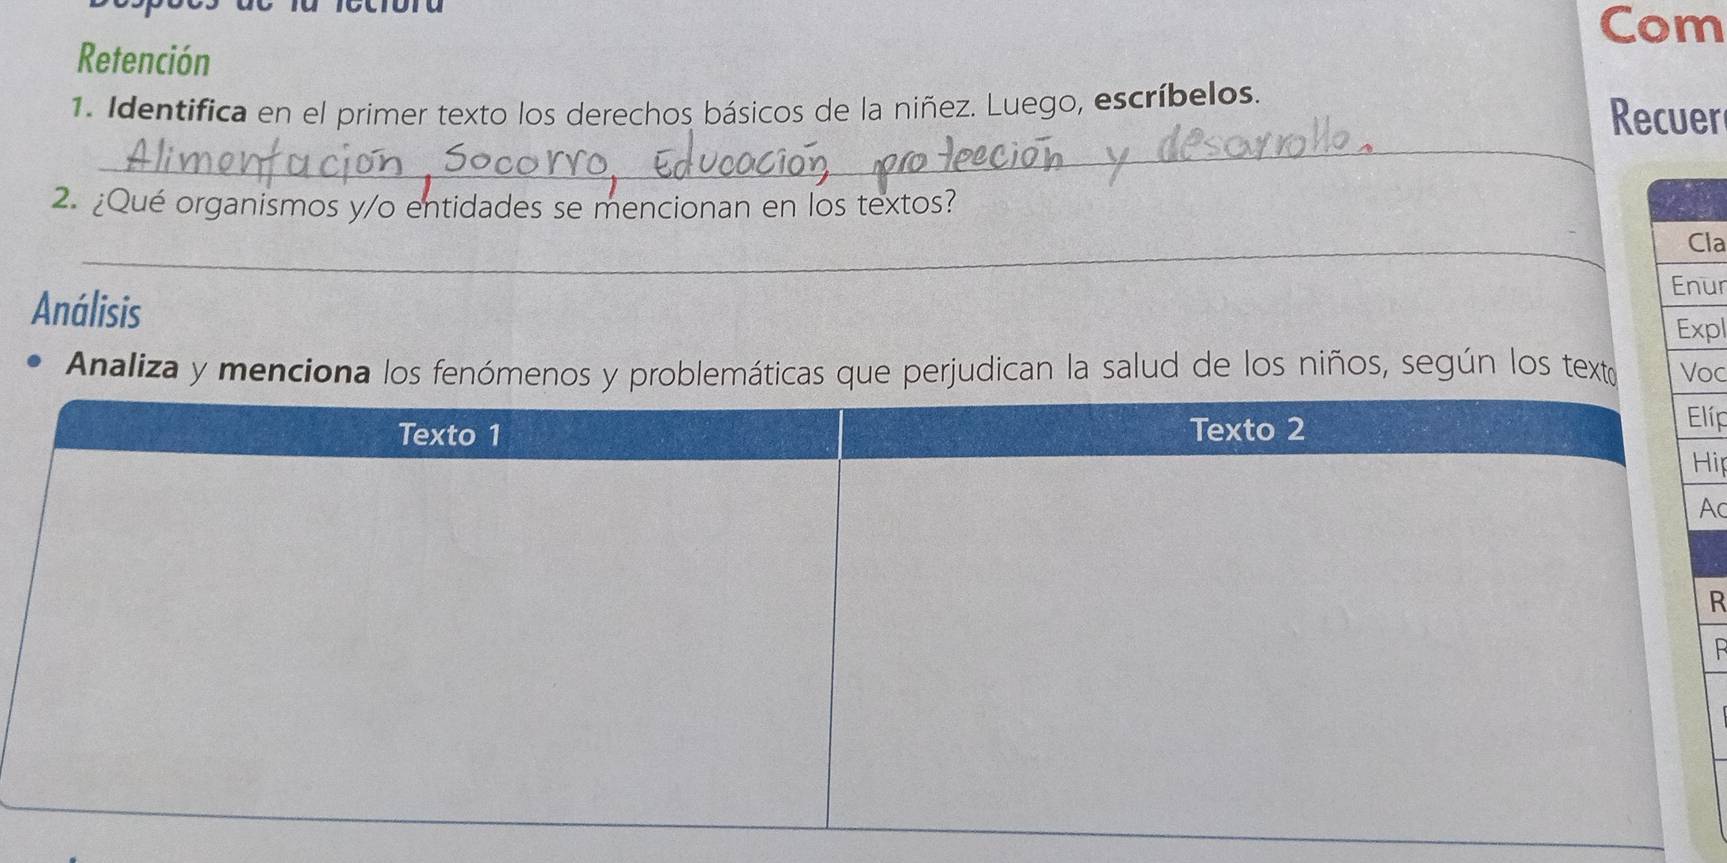 Después de la lectura
Retención
1. Identifica en el primer texto los derechos básicos de la niñez. Luego, escríbelos.
Alimentación, Socorro, Educación, protección y desarrollo.
2. ¿Qué organismos y/o entidades se mencionan en los textos?
Análisis
• Analiza y menciona los fenómenos y problemáticas que perjudican la salud de los niños, según los texto
Texto 1
Texto 2
Com
Recuer
Cla
Enu
Expl
Voc
Elíp
Hip
Ac
R
R